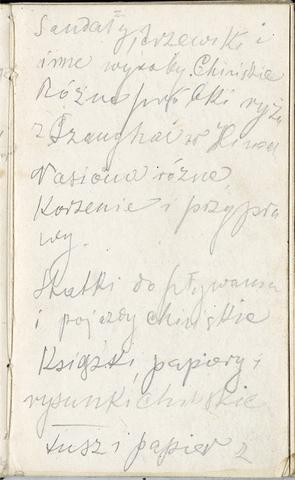 Sandały, trzewiki i
inne wyroby Chińskie
Różne próbki ryżu
z Szanghai w Hinach
Nasiona różne
Korzenie i przypra
wy.
Statki do pływania
i pojazdy chińskie
Książki, papiery i
rysunki chińskie
Tusz i papier z